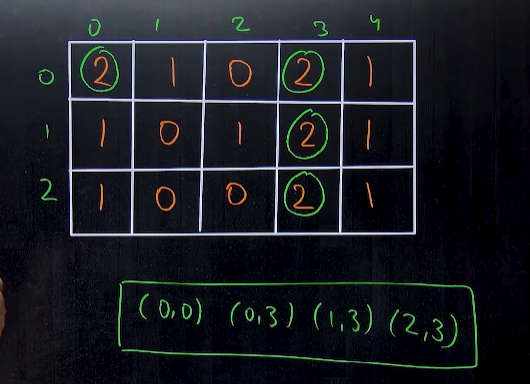 0 1 2 3 4
0 2 1 0 2 1
1 1 0 1 2 1
2 1 0 0 2 1
(0,0) (0,3) (1,3) (2,3)